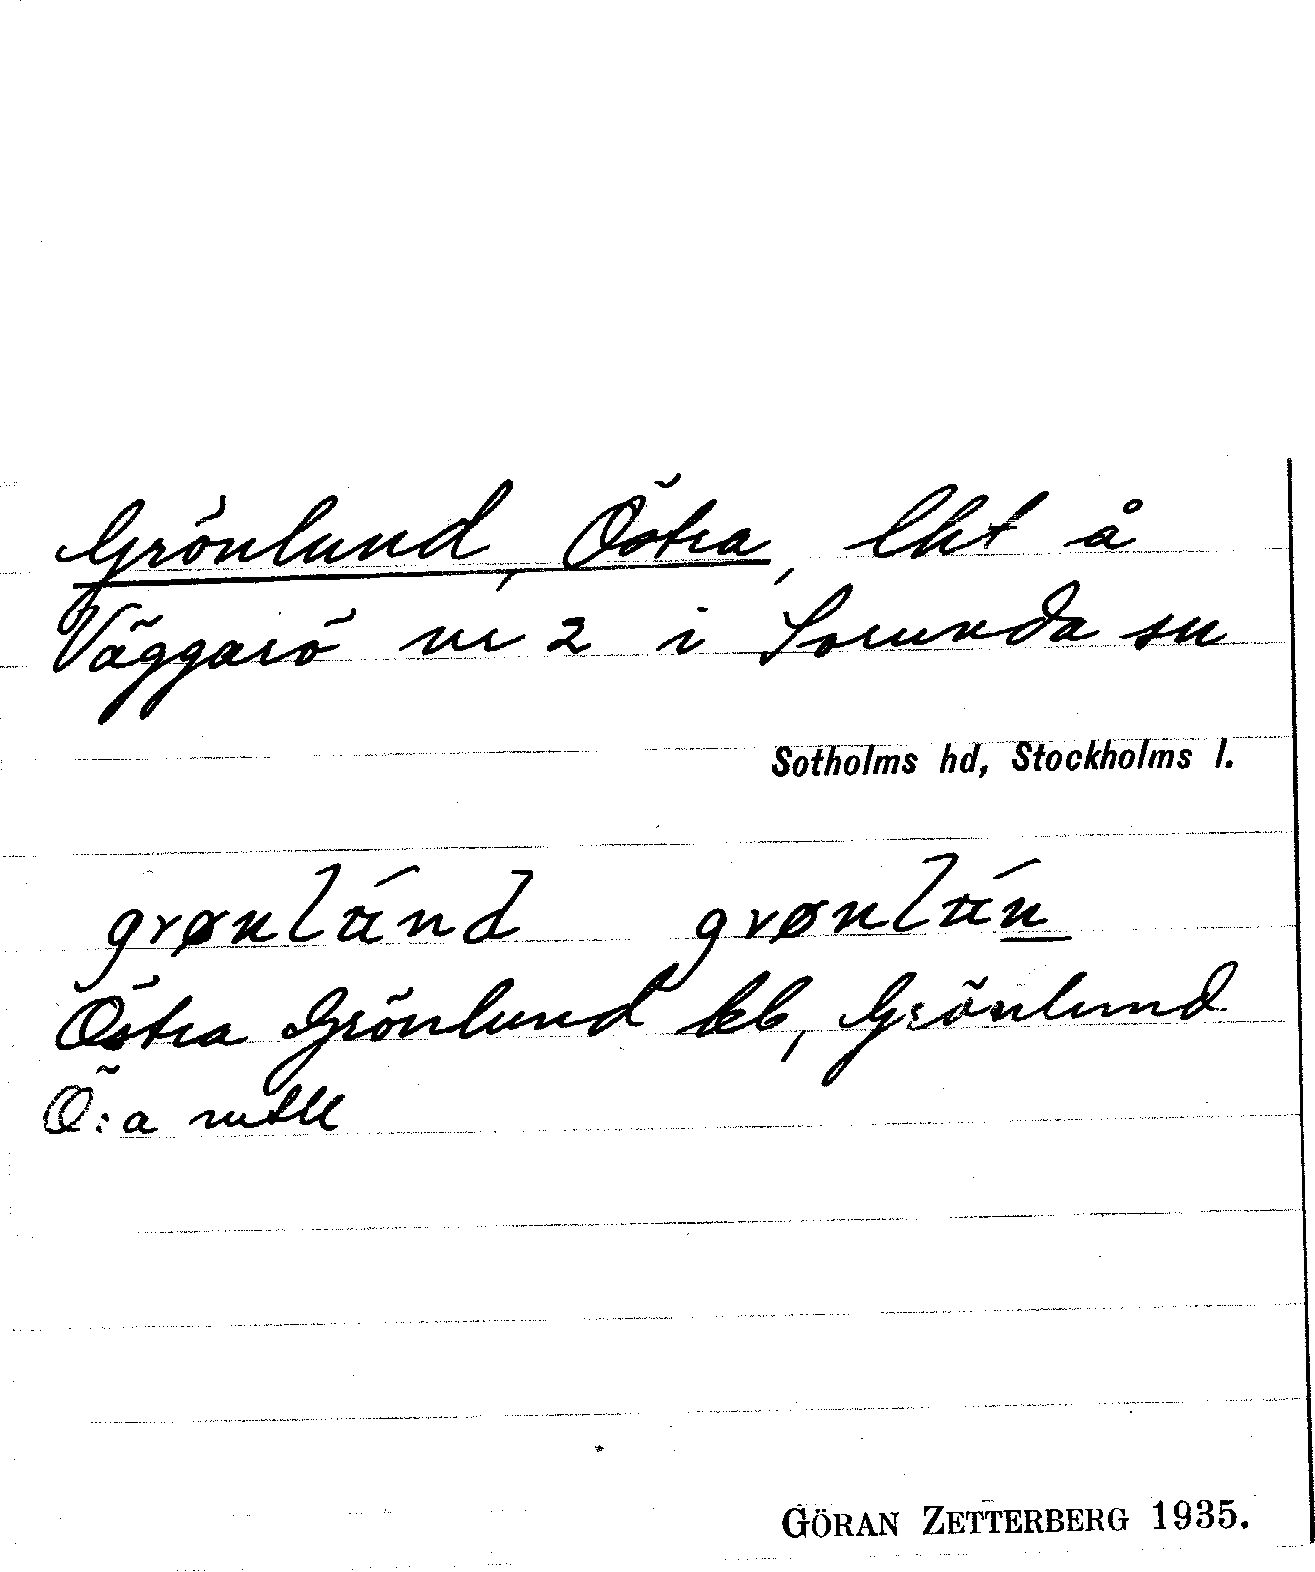 Grönlund, Östra, lht å
Väggarö nr 2 i Sorunda sn
Sotholms hd, Stockholms l.
Östra Grönlund kb, Grönlund
Ö:a mtll
GÖRAN ZETTERBERG 1935.